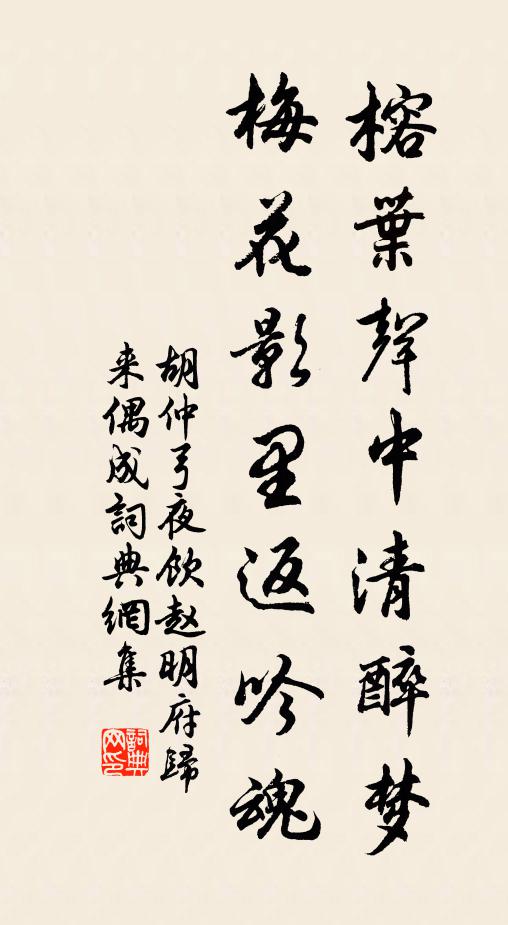 榕葉聲中清醉梦
梅花影里返吟魂
胡仲弓夜飲赵明府歸
来偶成詞典網集
詞典网印